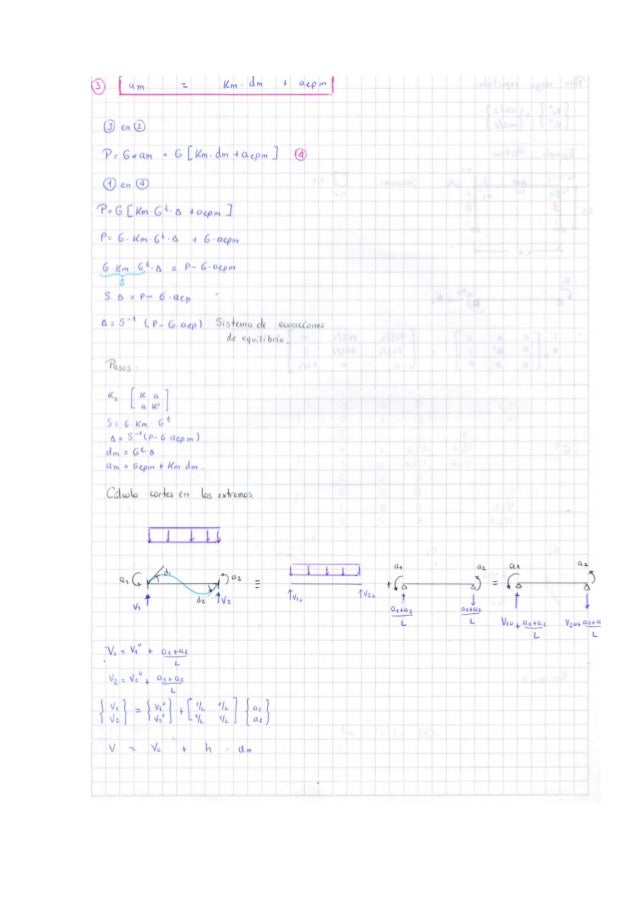 ③ am = Km. dm + acpm
③ en ②
P= G*am = G [Km. dm + acpm] ④
① en ④
P=G [Km. Gᵗ. Δ + acpm]
P= G. Km. Gᵗ. Δ + G. acpm
G Km Gᵗ. Δ = P- G. acpm
S
S Δ = P- G. acp
Δ= S⁻¹ (P- G. acp) Sistema de ecuaciones
de equilibrio.
Pasos:
K= [K a
a K']
S= G Km . Gᵗ
Δ = S⁻¹ (P- G acpm)
dm = Gᵗ. Δ
am = acpm + Km. dm.
Cálculo cortes en los extremos.
a1 d1 d2 a2 ≡ + a1 a2 = a1 a2
V1 V2 V10 V20 a1+a2/L a1+a2/L V10+ a1+a2/L V20+
V1 = V1° + a1+a2/L
V2 = V2° + a1+a2/L
{V1 V2} = {V1° V2°} + [1/L 1/L 1/L 1/L] {a1 a2}
V = V0 + h . am